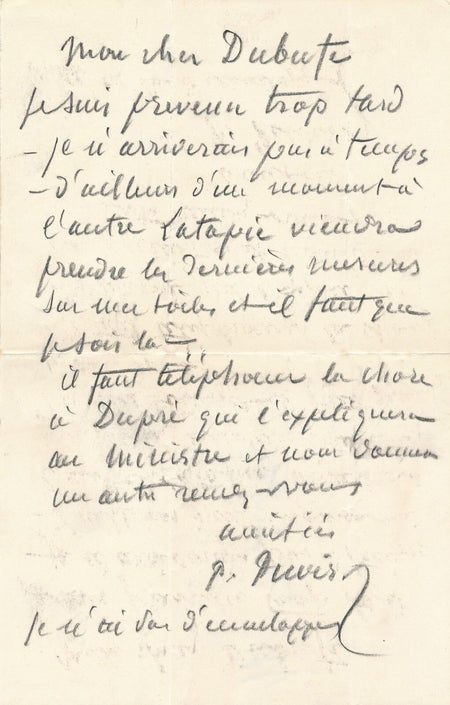 Mon cher Dubufe
je suis prevenu trop tard
- je n'arriverais pas à temps
- d'ailleurs d'un moment à
l'autre Latapie viendra
prendre les dernières mesures
sur mes toiles et il faut que
je sois là -
il faut téléphoner la chose
à Dupré qui l'expliquera
au Ministre et nous donnera
un autre rendez-vous
amitiés
P. Puvis
je n'ai pas d'enveloppe